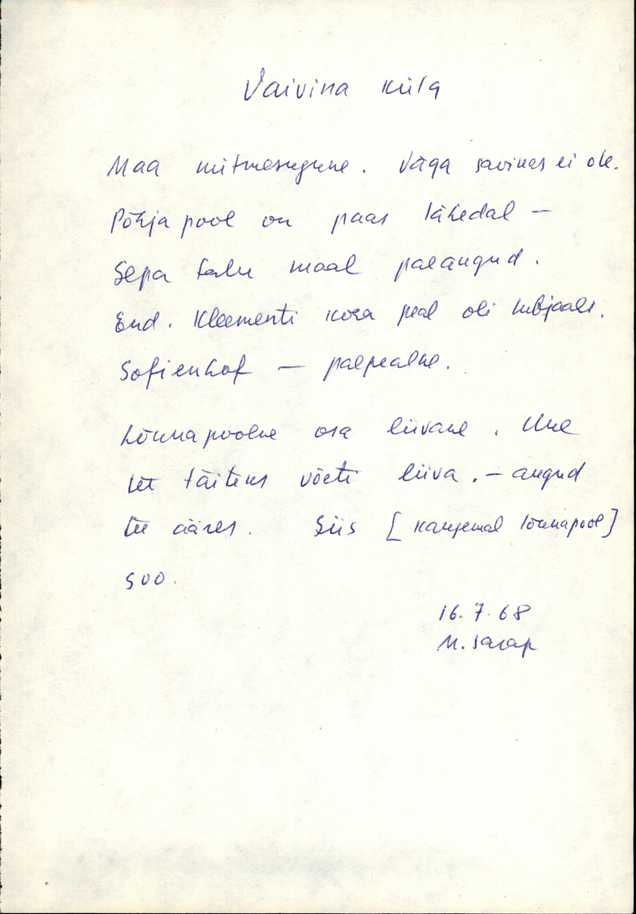 Vaivina küla
Maa mitmesugune. Väga savines ei ole.
Põhja pool on paas lähedal –
Sepa talu maal paeaugud.
End. Kleementi koha peal oli lubjaahi.
Sofienhof – paepealne.
Lõunapoolne osa liivane. Uue
tee täiteks võeti liiva. – augud
tee ääres. Siis [kaugemal lõunapool]
soo.
16.7.68
M. Sarap